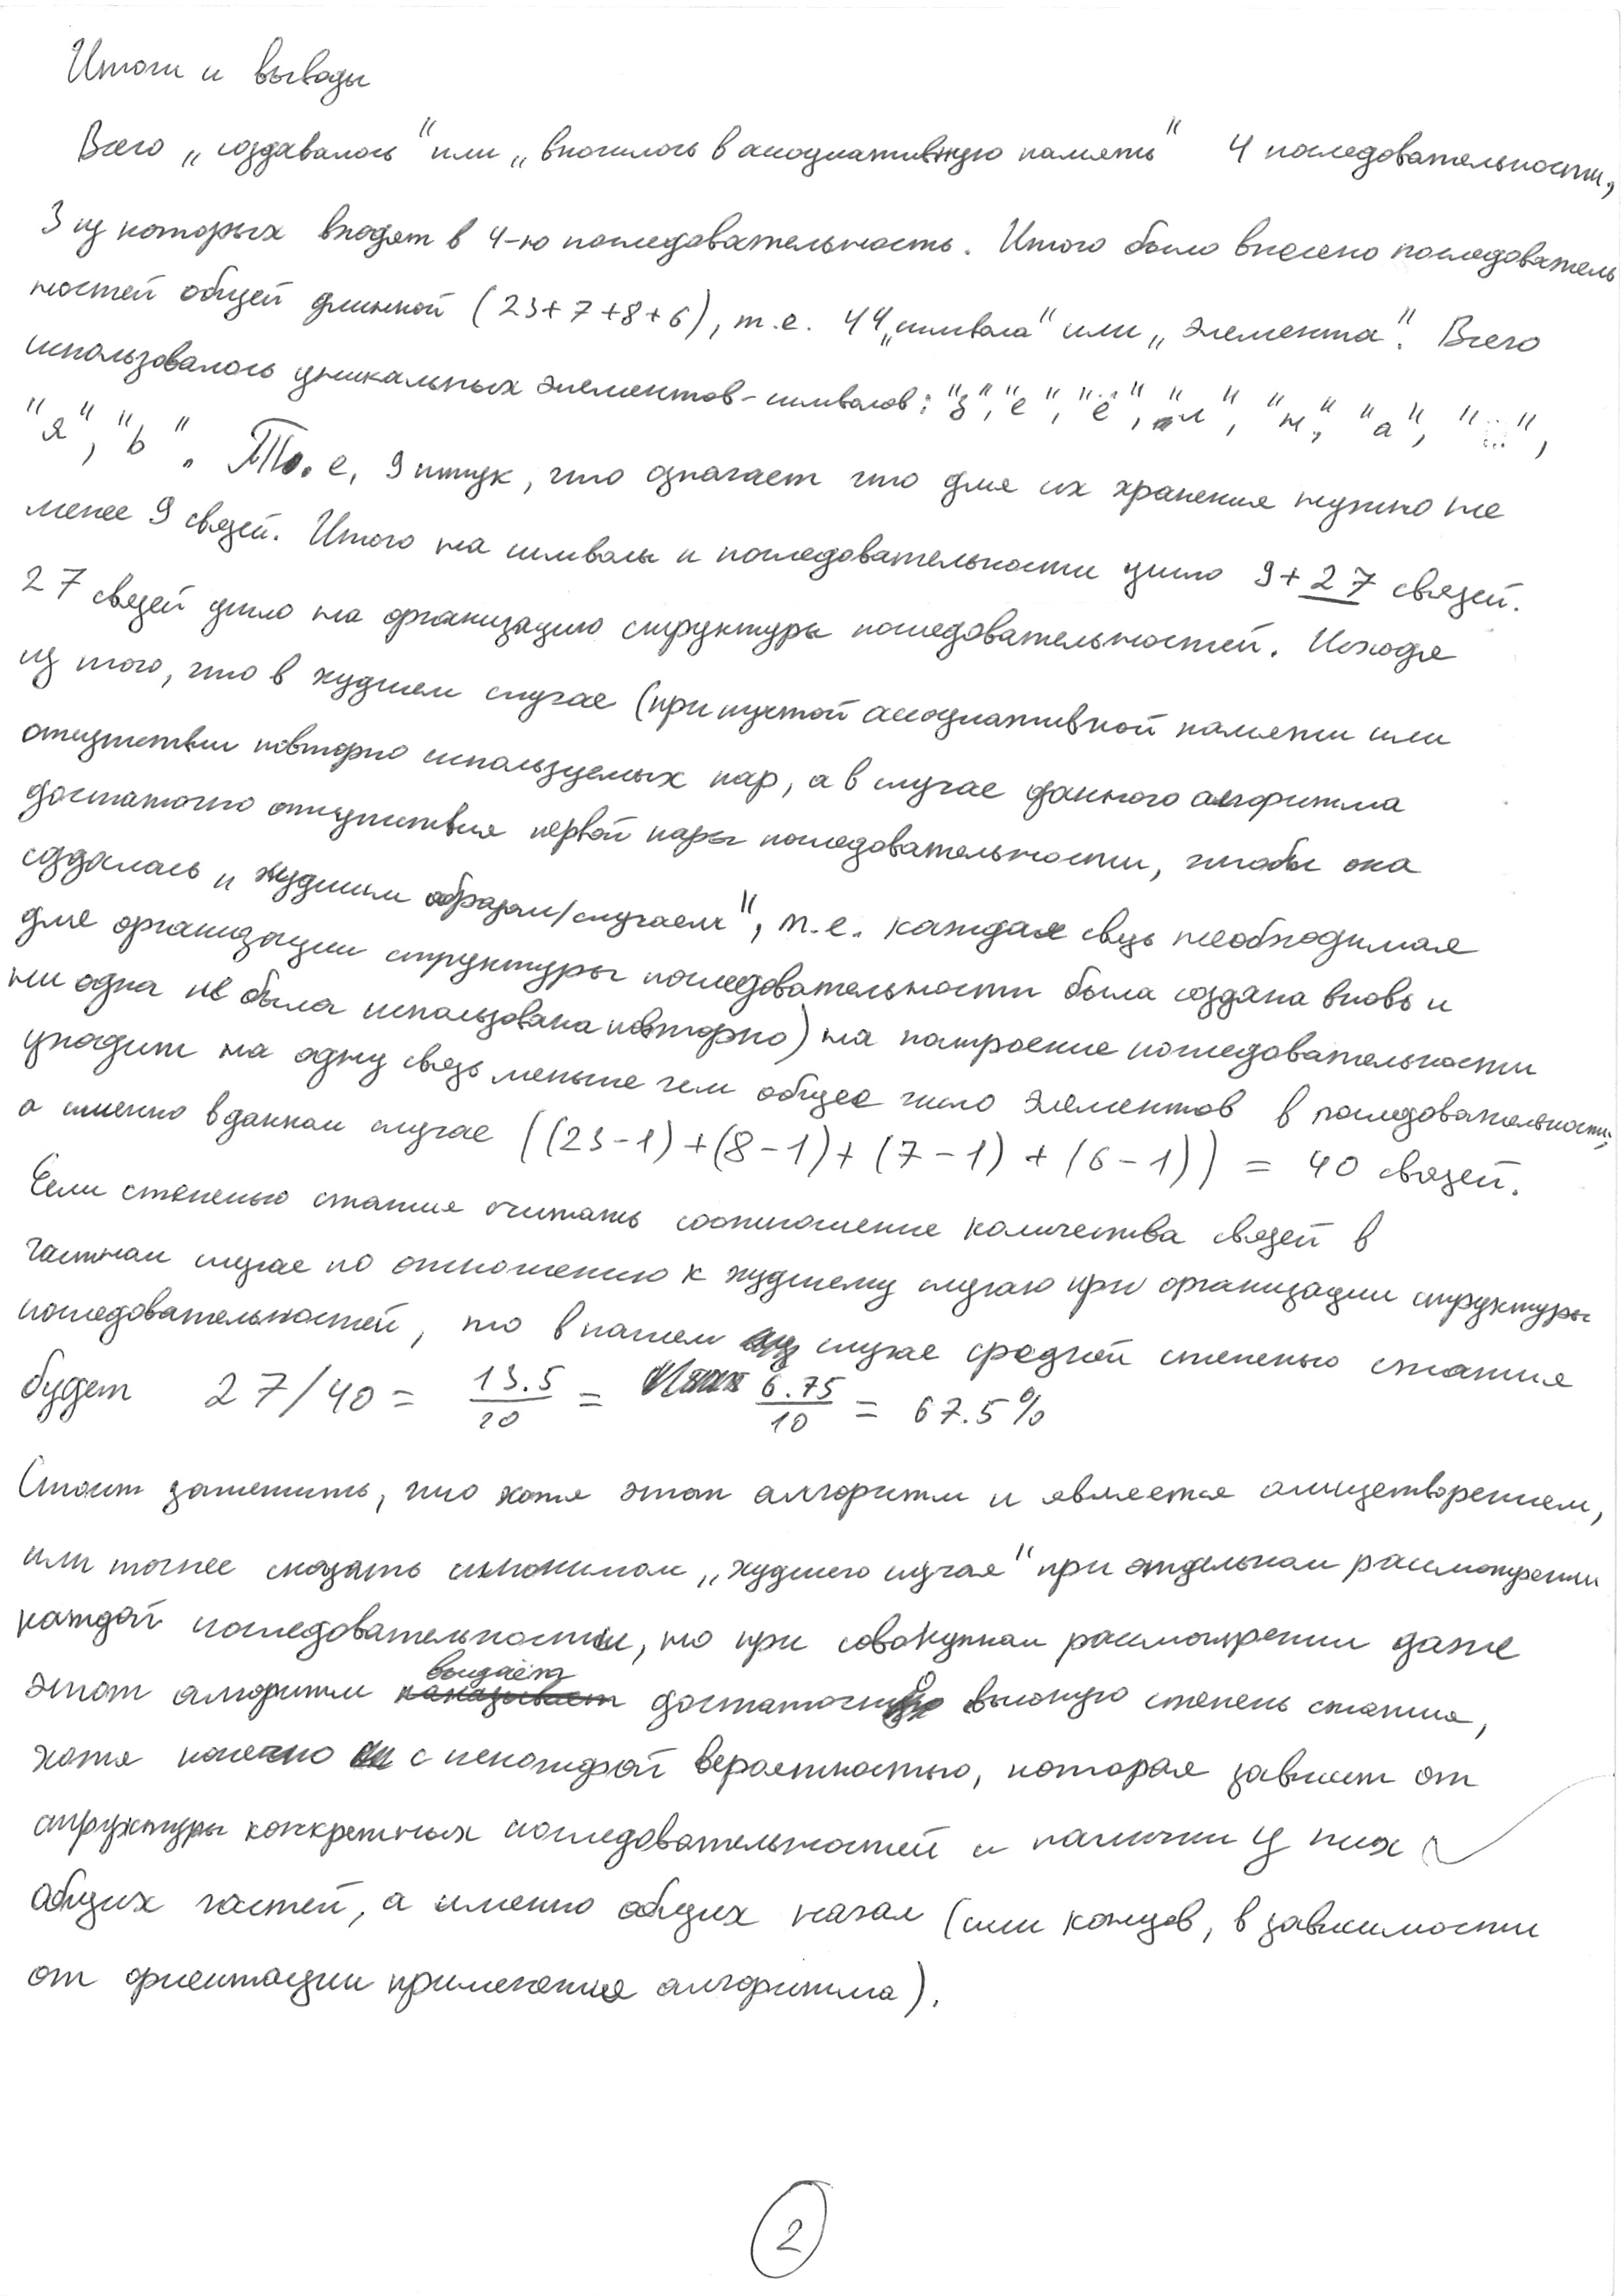 Итоги и выводы
Всего „создавалось" или „вносилось в ассоциативную память" 4 последовательности,
3 из которых входят в 4-ю последовательность. Итого было внесено последователь
ностей общей длинной (23+7+8+6), т.е. 44 „символа" или „элемента". Всего
использовалось уникальных элементов-символов: "з", "е", "ё", "л", "м", "а", " ",
"я", "ь". То.е. 9 штук, что означает что для их хранения нужно не
менее 9 связей. Итого на символы и последовательности ушло 9+27 связей.
27 связей ушло на организацию структуры последовательностей. Исходя
из того, что в худшем случае (при пустой ассоциативной памяти или
отсутствии повторно используемых пар, а в случае данного алгоритма
достаточно отсутствия первой пары последовательности, чтобы она
создалась „худшим образом/случаем", т.е. каждая связь необходимая
для организации структуры последовательности была создана вновь и
ни одна не была использована повторно) на построение последовательности
уходит на одну связь меньше чем общее число элементов в последовательности,
а именно в данном случае ((23-1)+(8-1)+(7-1)+(6-1)) = 40 связей.
Если степенью сжатия считать соотношение количества связей в
частном случае по отношению к худшему случаю при организации структуры
последовательностей, то в нашем случае средней степенью сжатия
будет 27/40 = 13.5/20 = 6.75/10 = 67.5%
Стоит заметить, что хотя этот алгоритм и является олицетворением,
или точнее сказать синонимом „худшего случая" при отдельном рассмотрении
каждой последовательности, но при совокупном рассмотрении даже
этот алгоритм выдаёт достаточно высокую степень сжатия,
хотя конечно с некой вероятностью, которая зависит от
структуры конкретных последовательностей и наличии у них
общих частей, а именно общих начал (или концов, в зависимости
от ориентации применения алгоритма).
2